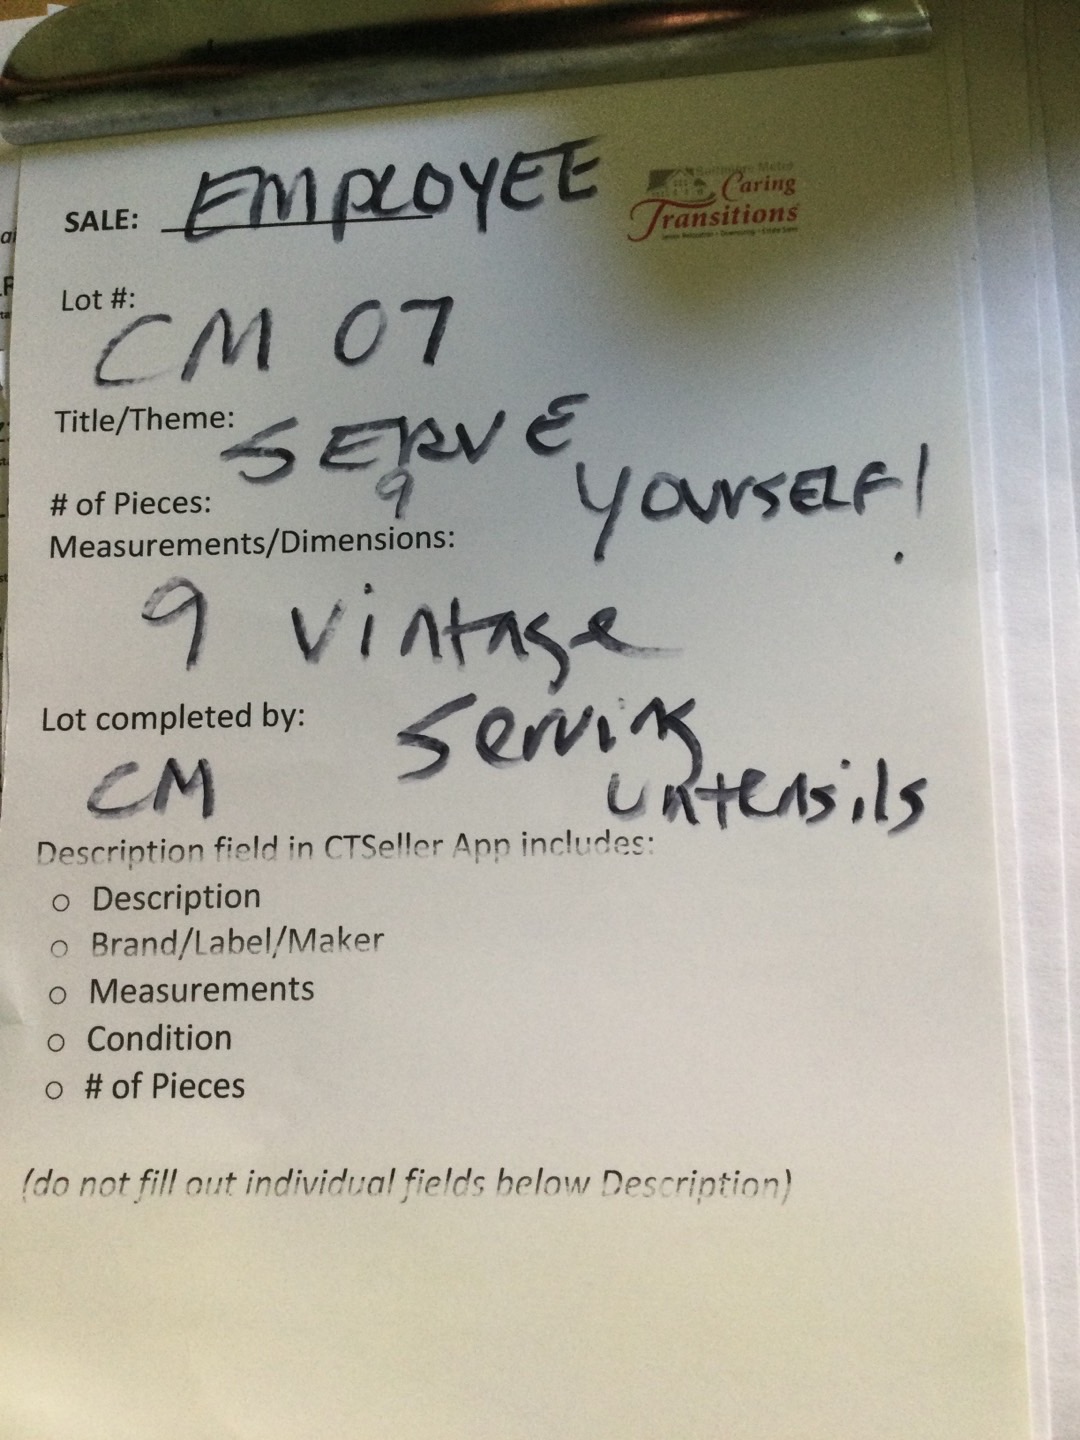 SALE: EMPLOYEE
Caring
Transitions
Lot #:
CM 07
Title/Theme: SERVE
YOURSELF!
# of Pieces: 9
Measurements/Dimensions:
9 Vintage
Lot completed by: Serving
CM untensils
Description field in CTSeller App includes:
o Description
o Brand/Label/Maker
o Measurements
o Condition
o # of Pieces
(do not fill out individual fields below Description)